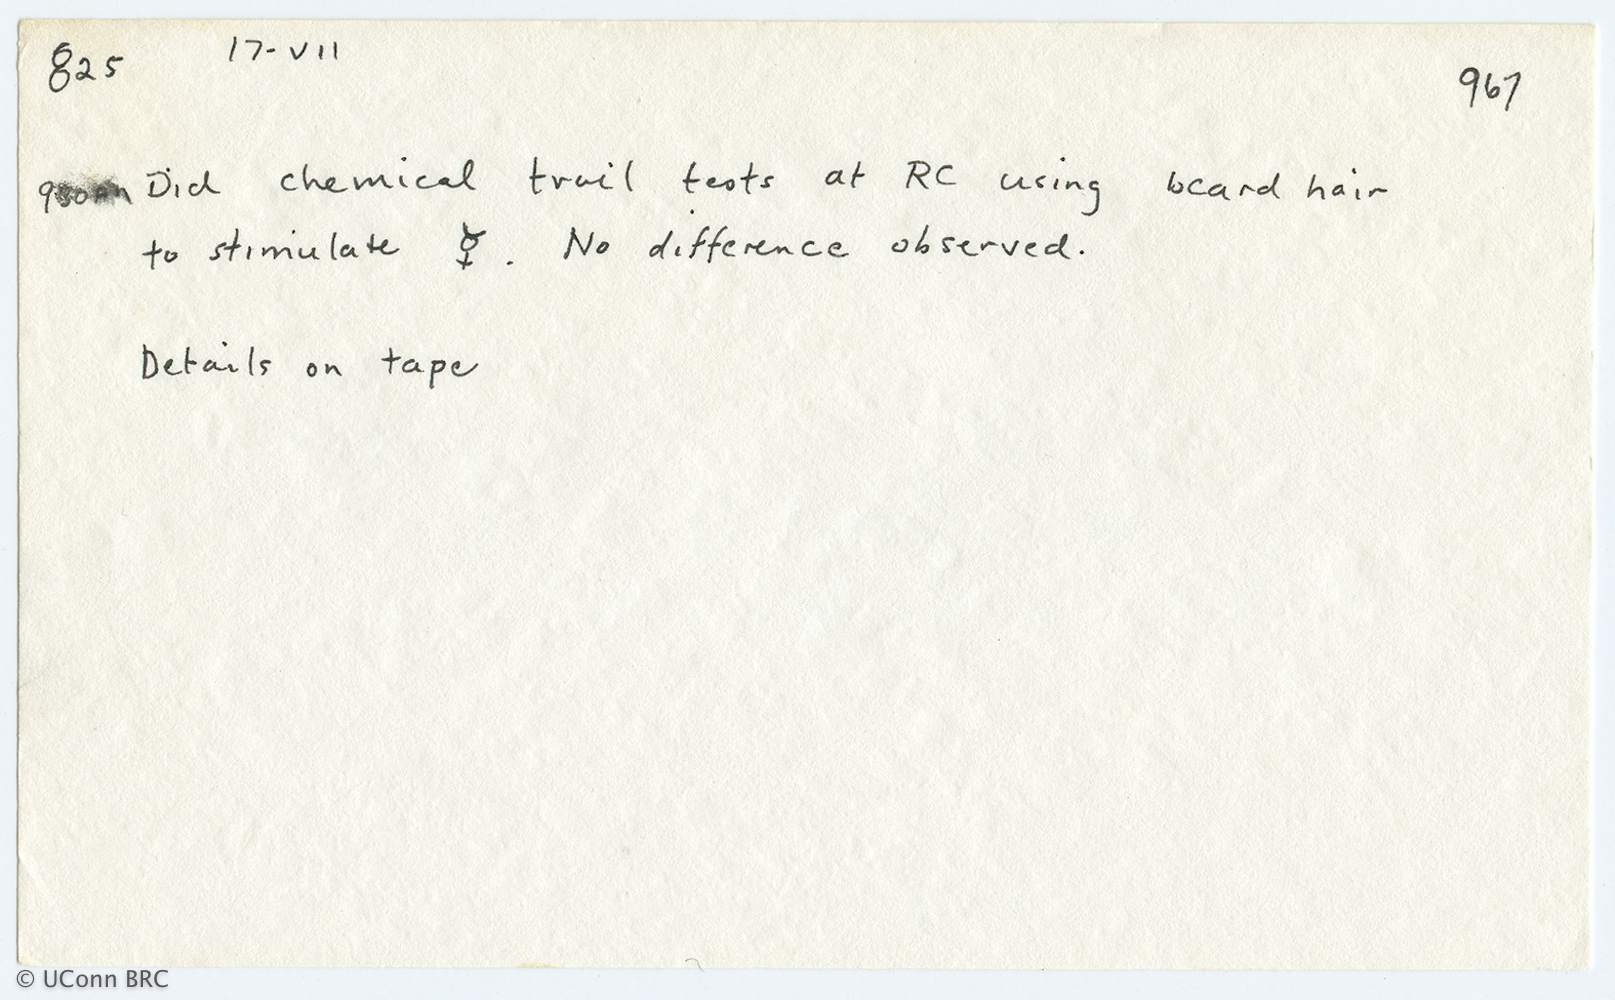 825 17-VII 967
Did chemical trail tests at RC using beard hair
to stimulate ☿. No difference observed.
Details on tape
© UConn BRC